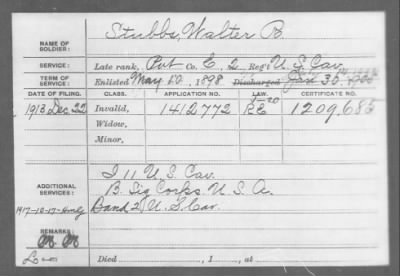 NAME OF SOLDIER: Stubbs, Walter B.
SERVICE: Late rank, Pvt Co. E, 2 Reg't U.S. Cav.
TERM OF SERVICE: Enlisted May 1898 Discharged Jan 30
DATE OF FILING. CLASS. APPLICATION NO. LAW. CERTIFICATE NO.
1913 Dec 22 Invalid, 1412772 1209.685
Widow,
Minor,
ADDITIONAL SERVICES: I 11 U.S. Cav.
B. Sig Corps U.S.A.
Band 2 U.S. Cav.
REMARKS:
Died , 1 , at